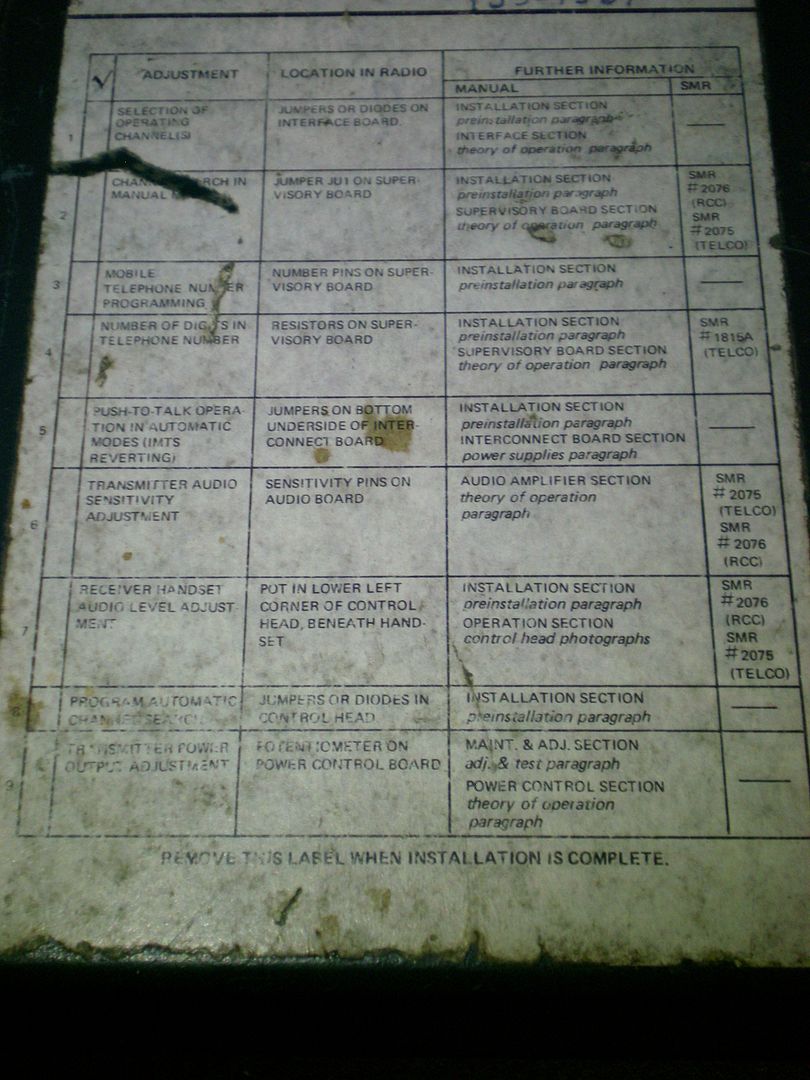 ✓ ADJUSTMENT LOCATION IN RADIO FURTHER INFORMATION
MANUAL SMR
1
SELECTION OF
OPERATING
CHANNEL(S)
JUMPERS OR DIODES ON
INTERFACE BOARD.
INSTALLATION SECTION
preinstallation paragraph
INTERFACE SECTION
theory of operation paragraph
—
2
IN
MANUAL
JUMPER JU1 ON SUPER-
VISORY BOARD
INSTALLATION SECTION
preinstallation paragraph
SUPERVISORY BOARD SECTION
theory of operation paragraph
SMR
#2076
(RCC)
SMR
#2075
(TELCO)
3
MOBILE
TELEPHONE NUMBER
PROGRAMMING
NUMBER PINS ON SUPER-
VISORY BOARD
INSTALLATION SECTION
preinstallation paragraph
—
4
NUMBER OF DIGITS IN
TELEPHONE NUMBER
RESISTORS ON SUPER-
VISORY BOARD
INSTALLATION SECTION
preinstallation paragraph
SUPERVISORY BOARD SECTION
theory of operation paragraph
SMR
#1815A
(TELCO)
5
PUSH-TO-TALK OPERA-
TION IN AUTOMATIC
MODES (IMTS
REVERTING)
JUMPERS ON BOTTOM
UNDERSIDE OF INTER-
CONNECT BOARD
INSTALLATION SECTION
preinstallation paragraph
INTERCONNECT BOARD SECTION
power supplies paragraph
—
6
TRANSMITTER AUDIO
SENSITIVITY
ADJUSTMENT
SENSITIVITY PINS ON
AUDIO BOARD
AUDIO AMPLIFIER SECTION
theory of operation
paragraph
SMR
#2075
(TELCO)
SMR
#2076
(RCC)
7
RECEIVER HANDSET
AUDIO LEVEL ADJUST-
MENT
POT IN LOWER LEFT
CORNER OF CONTROL
HEAD, BENEATH HAND-
SET
INSTALLATION SECTION
preinstallation paragraph
OPERATION SECTION
control head photographs
SMR
#2076
(RCC)
SMR
#2075
(TELCO)
8
PROGRAM AUTOMATIC
CHANNEL SEARCH
JUMPERS OR DIODES IN
CONTROL HEAD
INSTALLATION SECTION
preinstallation paragraph
—
9
TRANSMITTER POWER
OUTPUT ADJUSTMENT
POTENTIOMETER ON
POWER CONTROL BOARD
MAINT. & ADJ. SECTION
adj. & test paragraph
POWER CONTROL SECTION
theory of operation
paragraph
—
REMOVE THIS LABEL WHEN INSTALLATION IS COMPLETE.